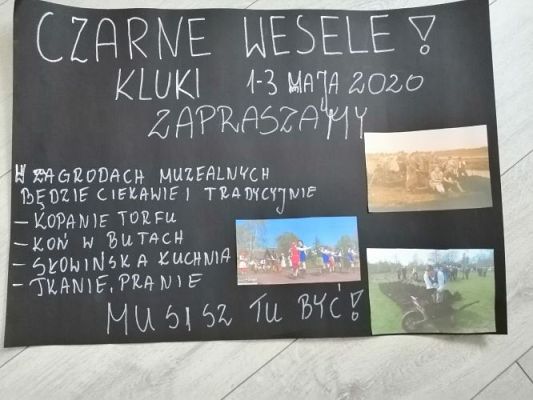 CZARNE WESELE!
KLUKI 1-3 MAJA 2020
ZAPRASZAMY
W ZAGRODACH MUZEALNYCH
BĘDZIE CIEKAWIE I TRADYCYJNIE
- KOPANIE TORFU
- KOŃ W BUTACH
- SŁOWIŃSKA KUCHNIA
- TKANIE, PRANIE
MUSISZ TU BYĆ!